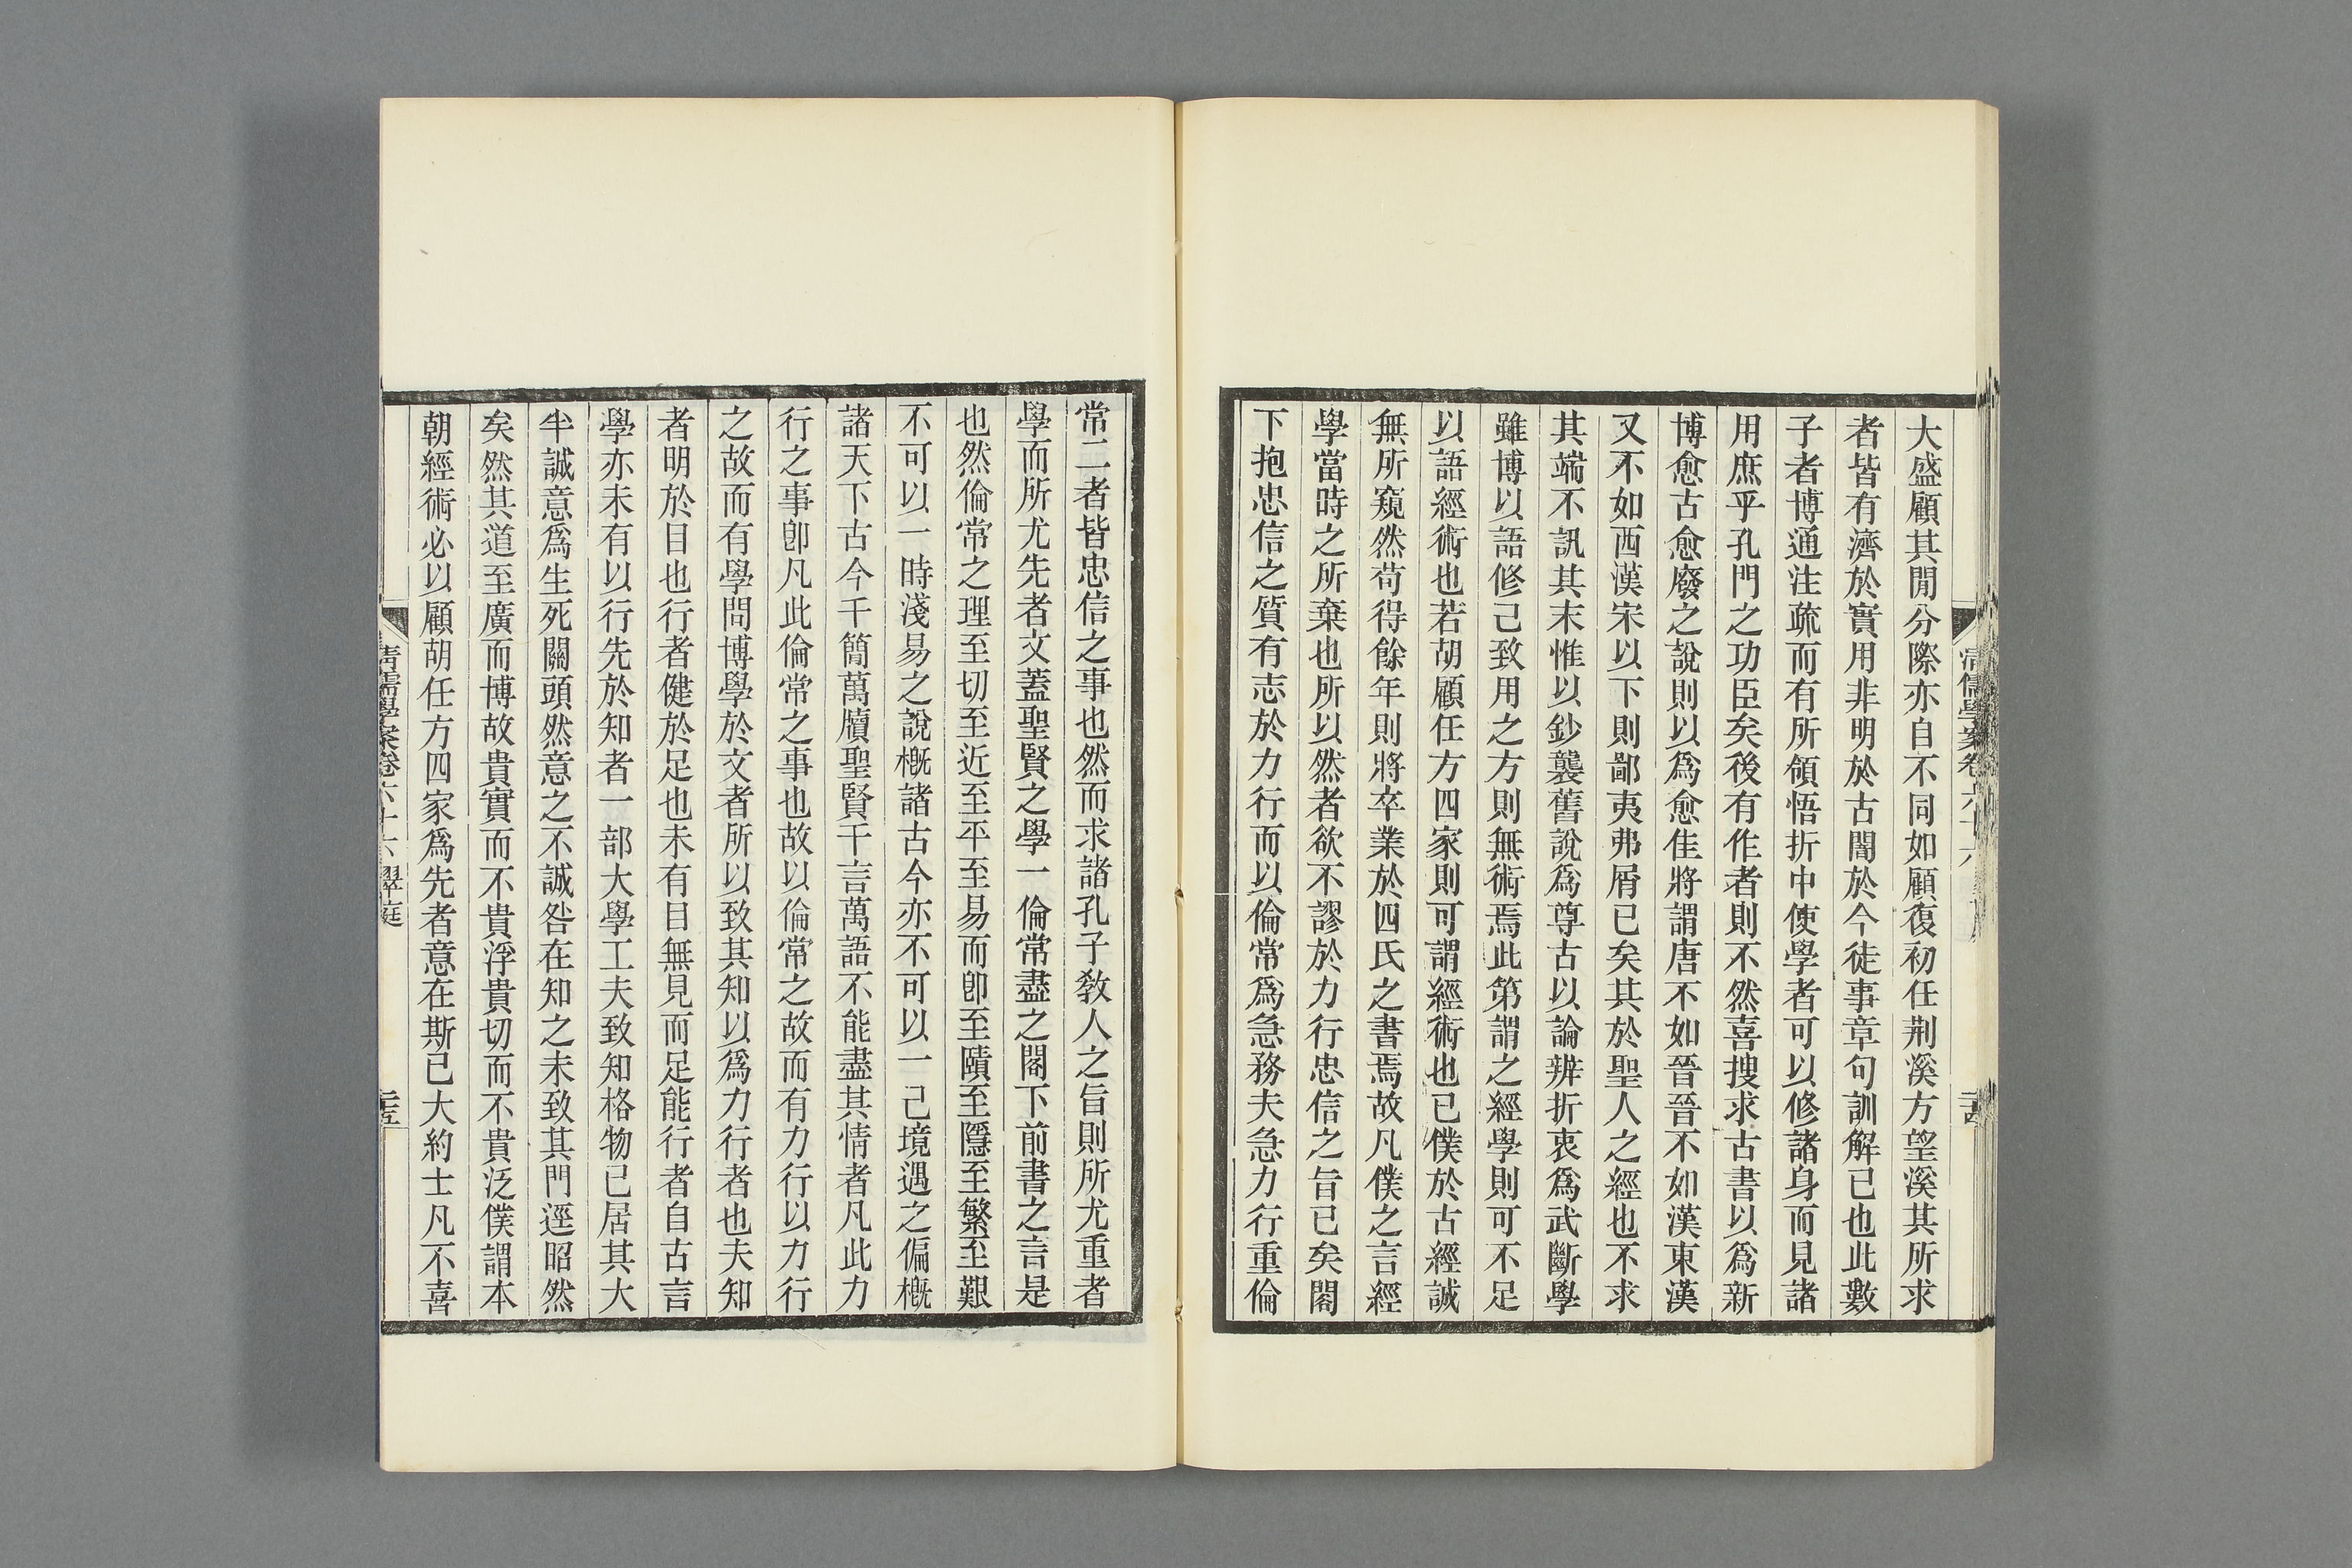 大盛顧其閒分際亦自不同如顧復初任荆溪方望溪其所求
者皆有濟於實用非明於古闇於今徒事章句訓解已也此數
子者博通注疏而有所領悟折中使學者可以修諸身而見諸
用庶乎孔門之功臣矣後有作者則不然喜搜求古書以爲新
博愈古愈廢之說則以爲愈佳將謂唐不如晉晉不如漢東漢
又不如西漢宋以下則鄙夷弗屑已矣其於聖人之經也不求
其端不訊其末惟以鈔襲舊說爲尊古以論辨折衷爲武斷學
雖博以語修己致用之方則無術焉此第謂之經學則可不足
以語經術也若胡顧任方四家則可謂經術也已僕於古經誠
無所窺然苟得餘年則將卒業於四氏之書焉故凡僕之言經
學當時之所棄也所以然者欲不謬於力行忠信之旨已矣閣
下抱忠信之質有志於力行而以倫常爲急務夫急力行重倫
常二者皆忠信之事也然而求諸孔子教人之旨則所尤重者
學而所尤先者文蓋聖賢之學一倫常盡之閣下前書之言是
也然倫常之理至切至近至平至易而卽至賾至隱至繁至艱
不可以一時淺易之說槪諸古今亦不可以一己境遇之偏槪
諸天下古今千簡萬牘聖賢千言萬語不能盡其情者凡此力
行之事卽凡此倫常之事也故以倫常之故而有力行以力行
之故而有學問博學於文者所以致其知以爲力行者也夫知
者明於目也行者健於足也未有目無見而足能行者自古言
學亦未有以行先於知者一部大學工夫致知格物已居其大
半誠意爲生死關頭然意之不誠咎在知之未致其門逕昭然
矣然其道至廣而博故貴實而不貴浮貴切而不貴泛僕謂本
朝經術必以顧胡任方四家爲先者意在斯已大約士凡不喜
清儒學案卷六十六 翠庭